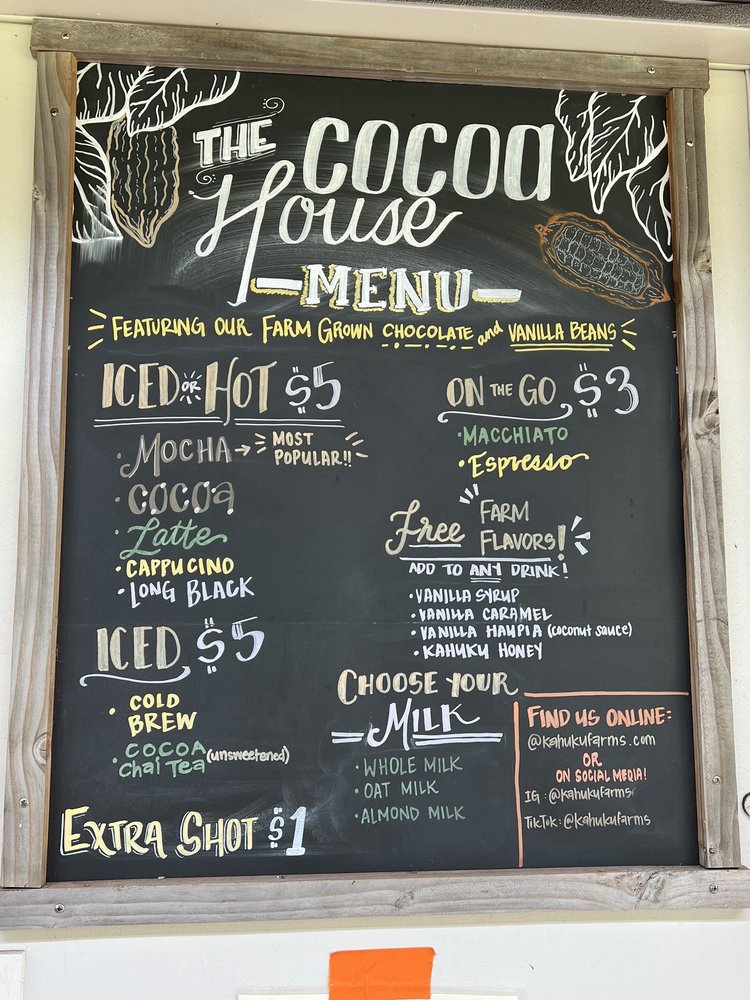 THE COCOA
House
MENU
FEATURING OUR FARM GROWN CHOCOLATE and VANILLA BEANS
ICED OR HOT $5
· MOCHA → MOST
POPULAR!!
· COCOA
· Latte
· CAPPUCINO
· LONG BLACK
ICED $5
· COLD
BREW
· COCOA
Chai Tea (unsweetened)
EXTRA SHOT $1
ON THE GO $3
· MACCHIATO
· Espresso
Free FARM
FLAVORS!
ADD TO ANY DRINK!
· VANILLA SYRUP
· VANILLA CARAMEL
· VANILLA HAUPIA (coconut sauce)
· KAHUKU HONEY
CHOOSE YOUR
MILK
· WHOLE MILK
· OAT MILK
· ALMOND MILK
FIND US ONLINE:
@kahukufarms.com
OR
ON SOCIAL MEDIA!
IG: @kahukufarms
TikTok: @kahukufarms